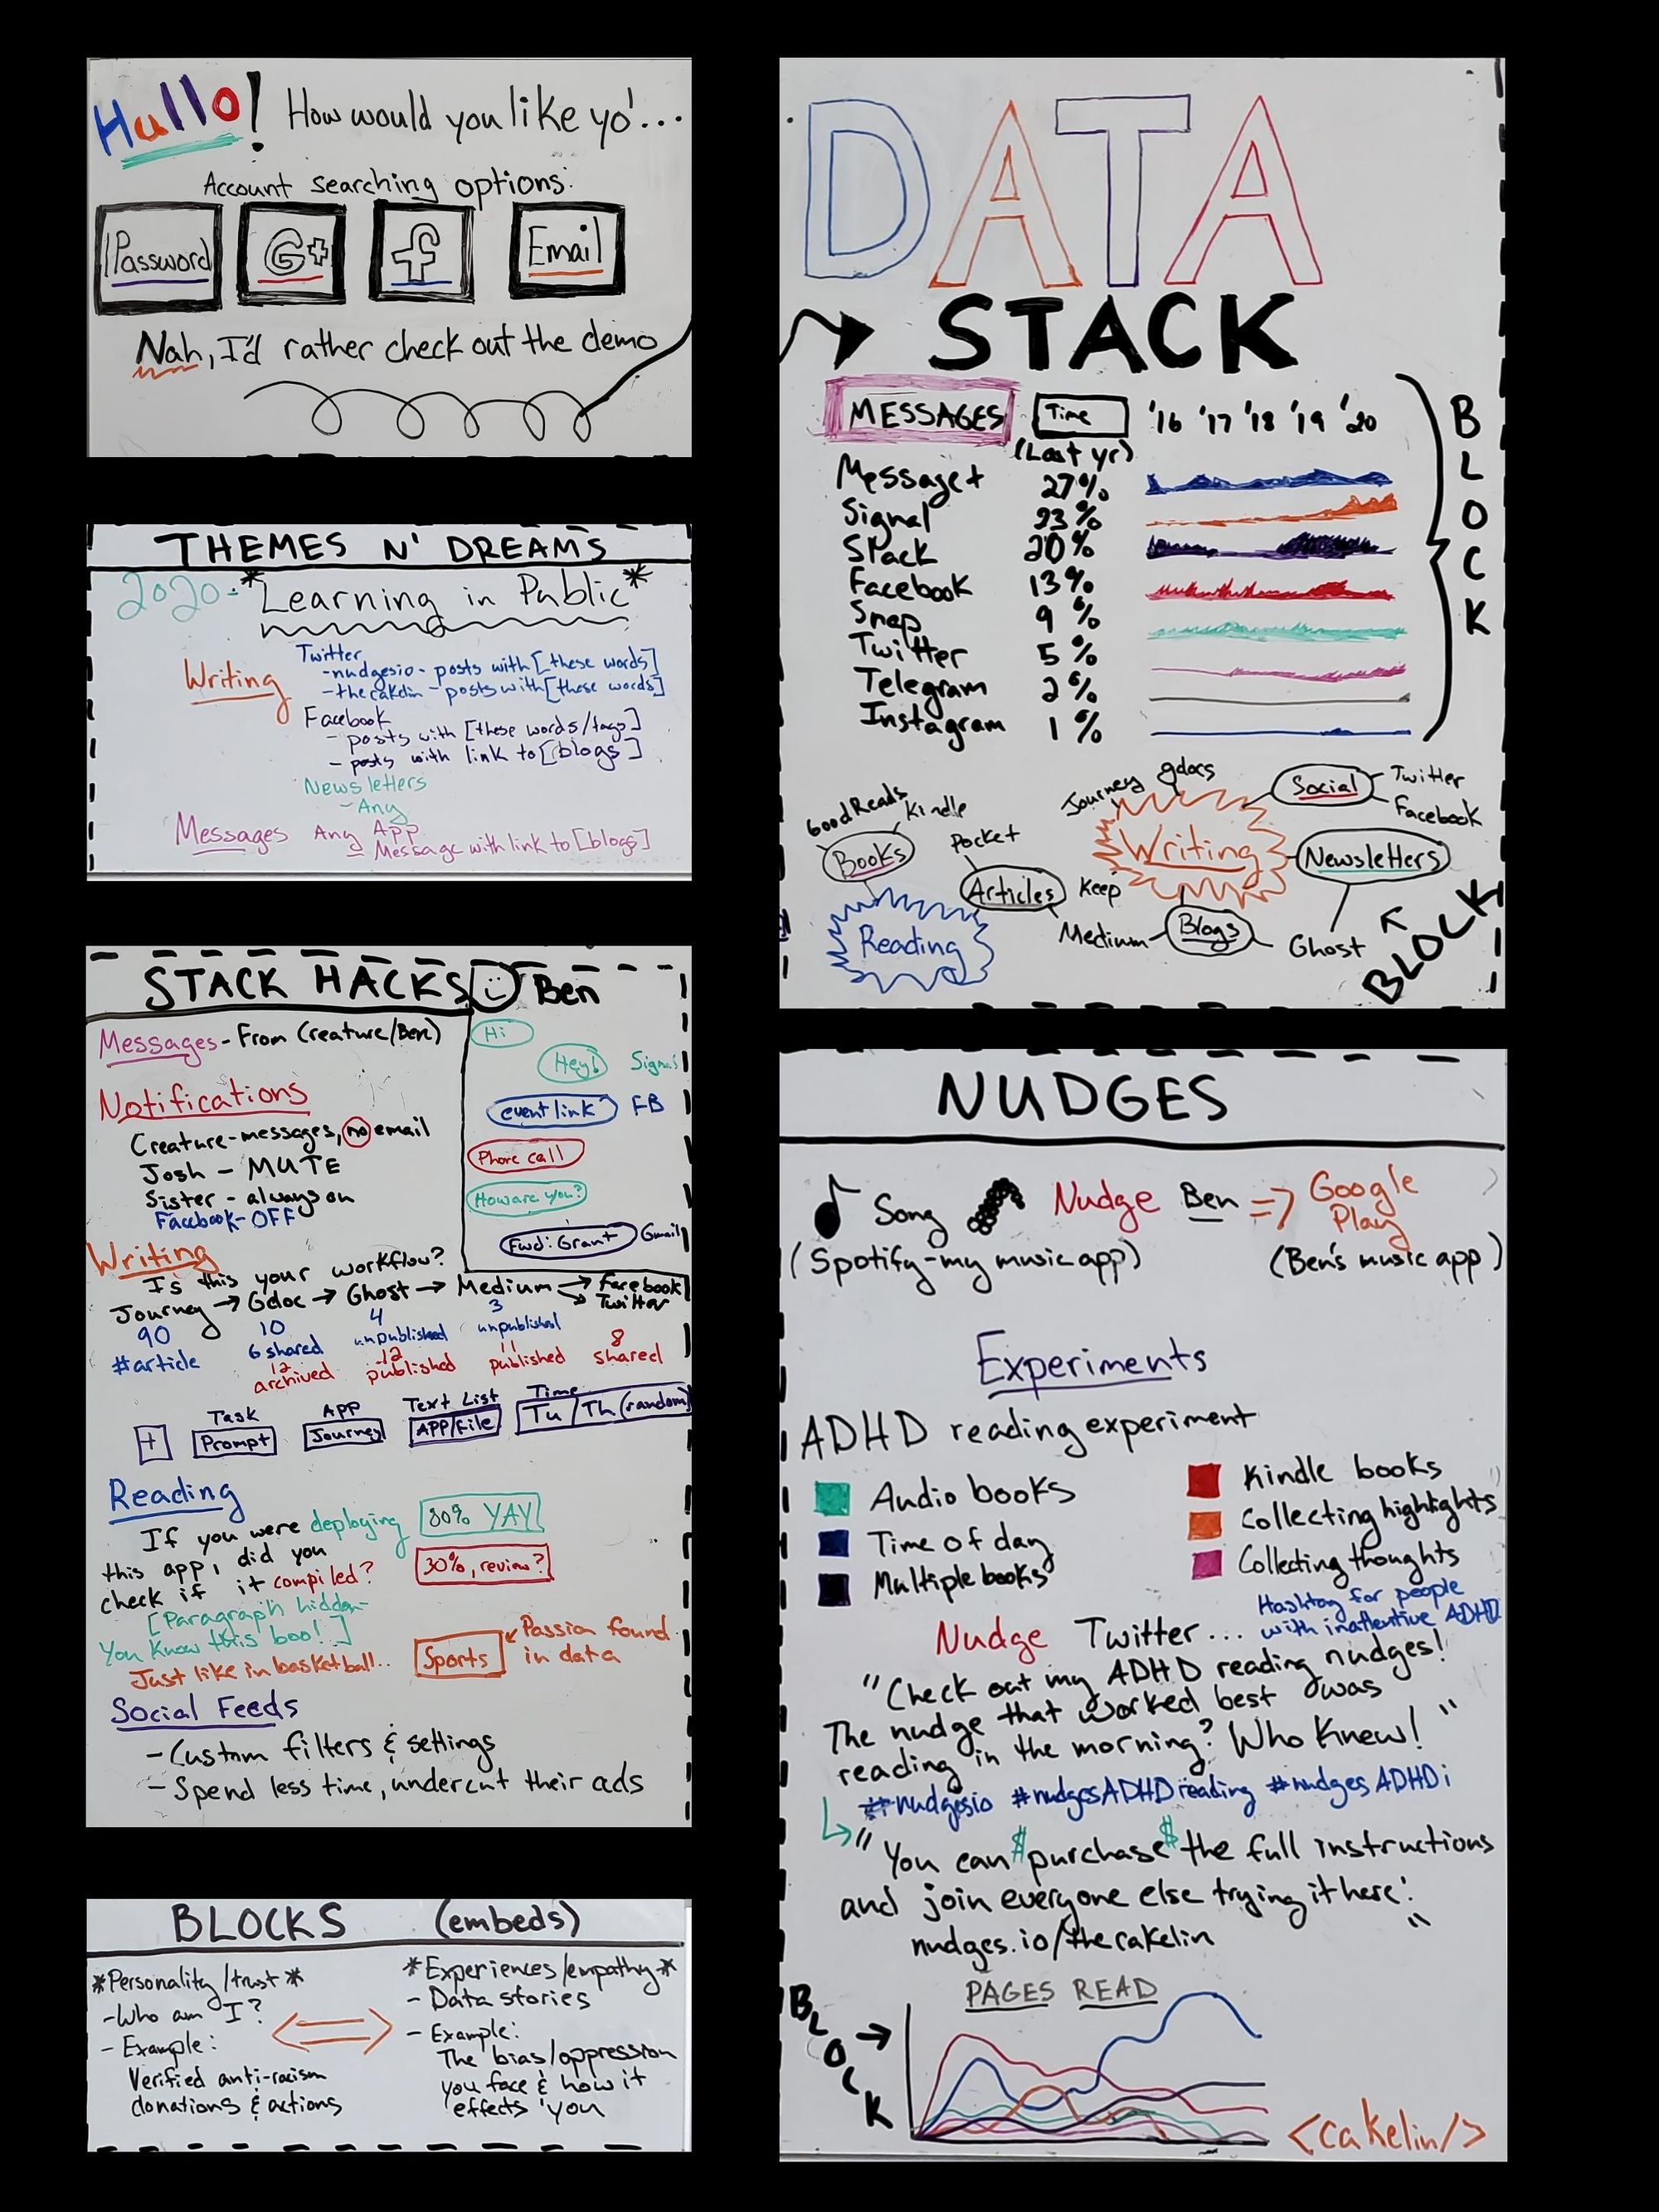 Hallo! How would you like yo'...
Account searching options:
Password G+ f Email
Nah, I'd rather check out the demo
THEMES N' DREAMS
2020- *Learning in Public*
Writing
Twitter
-nudgesio- posts with [these words]
-thecakelin- posts with [these words]
Facebook
- posts with [these words/tags]
- posts with link to [blogs]
Newsletters
-Any
Messages Any App
- Message with link to [blogs]
STACK HACKS Ben
Messages - From (Creature/Ben)
Notifications
Creature-messages, no email
Josh - MUTE
Sister - always on
Facebook-OFF
Hi
Hey! Signal
event link FB
Phone call
How are you?
Fwd: Grant Gmail
Writing
Is this your workflow?
Journey → Gdoc → Ghost → Medium → Facebook
→ Twitter
90 10 4 3
#article 6 shared unpublished unpublished
12 12 11 8
archived published published shared
Task APP Text List Time
+ Prompt Journey APP/File Tu/Th (random)
Reading
If you were deploying
this app, did you
check if it compiled?
[Paragraph hidden-
You know this boo!]
Just like in basketball...
80% YAY
30%, review?
Sports
Passion found
in data
Social Feeds
- Custom filters & settings
- Spend less time, undercut their ads
BLOCKS (embeds)
*Personality/trust*
-Who am I?
- Example:
Verified anti-racism
donations & actions
*Experiences/empathy*
- Data stories
- Example:
The bias/oppression
you face & how it
effects you
DATA
STACK
MESSAGES Time '16 '17 '18 '19 '20
(Last yr)
Message+ 27%
Signal 23%
Slack 20%
Facebook 13%
Snap 9%
Twitter 5%
Telegram 2%
Instagram 1%
BLOCK
GoodReads Kindle
Books
Pocket
Articles
Reading
Journey gdocs
Writing
Keep
Medium
Blogs
Social
Twitter
Facebook
Newsletters
Ghost
BLOCK
NUDGES
Song Nudge Ben => Google
Play
(Spotify-my music app) (Ben's music app)
Experiments
ADHD reading experiment
Audio books
Time of day
Multiple books
Kindle books
Collecting highlights
Collecting thoughts
Hashtag for people
with inattentive ADHD
Nudge Twitter...
"Check out my ADHD reading nudges!
The nudge that worked best was
reading in the morning? Who Knew!"
#nudgesio #nudgesADHDreading #nudgesADHDi
"You can $purchase$ the full instructions
and join everyone else trying it here:
nudges.io/thecakelin"
PAGES READ
BLOCK →
<cakelin/>